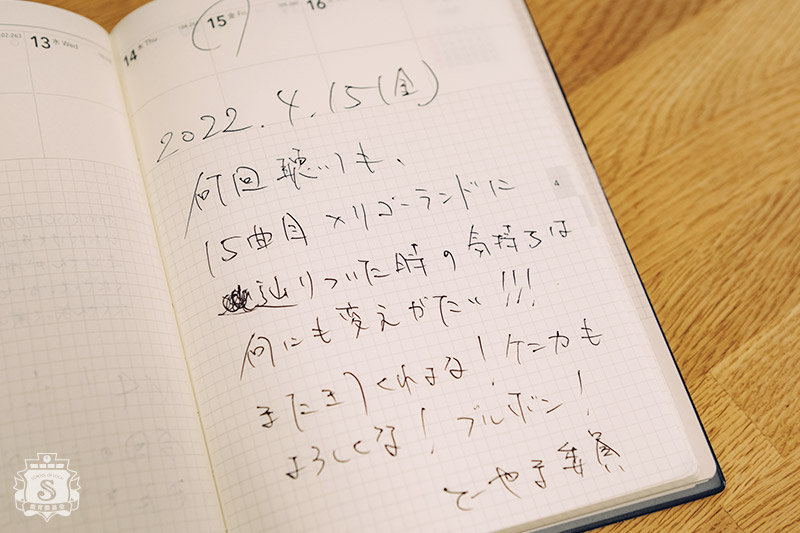 13 水 Wed
14 木 Thu
15 金 Fri
16
2022.4.15(金)
何回聴いても、
15曲目 メリゴーランドに
辿りついた時の気持ちは
何にも変えがたい!!!
またきてくれよな!ケンカも
よろしくな!ブルボン!
とーやま委員
4
S